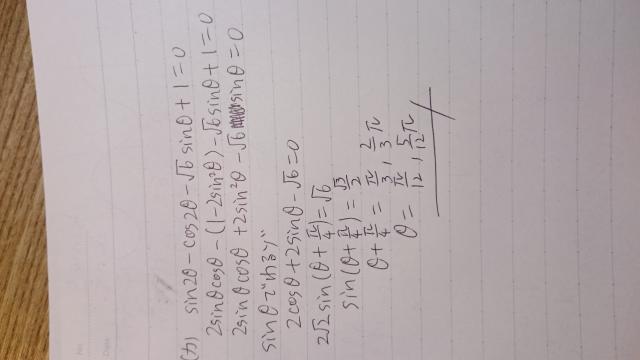 (カ) sin2θ-cos2θ-√6sinθ+1=0
2sinθcosθ-(1-2sin²θ)-√6sinθ+1=0
2sinθcosθ+2sin²θ-√6sinθ=0
sinθでわると
2cosθ+2sinθ-√6=0
2√2sin(θ+π/4)=√6
sin(θ+π/4)=√3/2
θ+π/4=π/3,2/3π
θ=π/12,5/12π